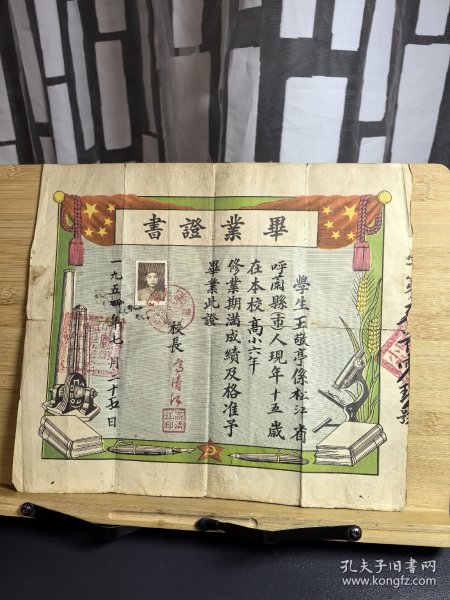 畢業證書
學生王敬亭係松江省
呼蘭縣市人現年十五歲
在本校高小六年
修業期滿成績及格准予
畢業此證
校長
一九五四年七月二十五日
孔夫子旧书网
www.kongfz.com